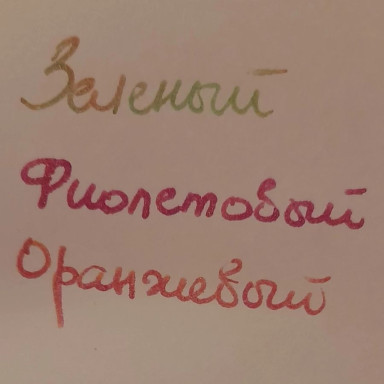 Зеленый
Фиолетовый
Оранжевый